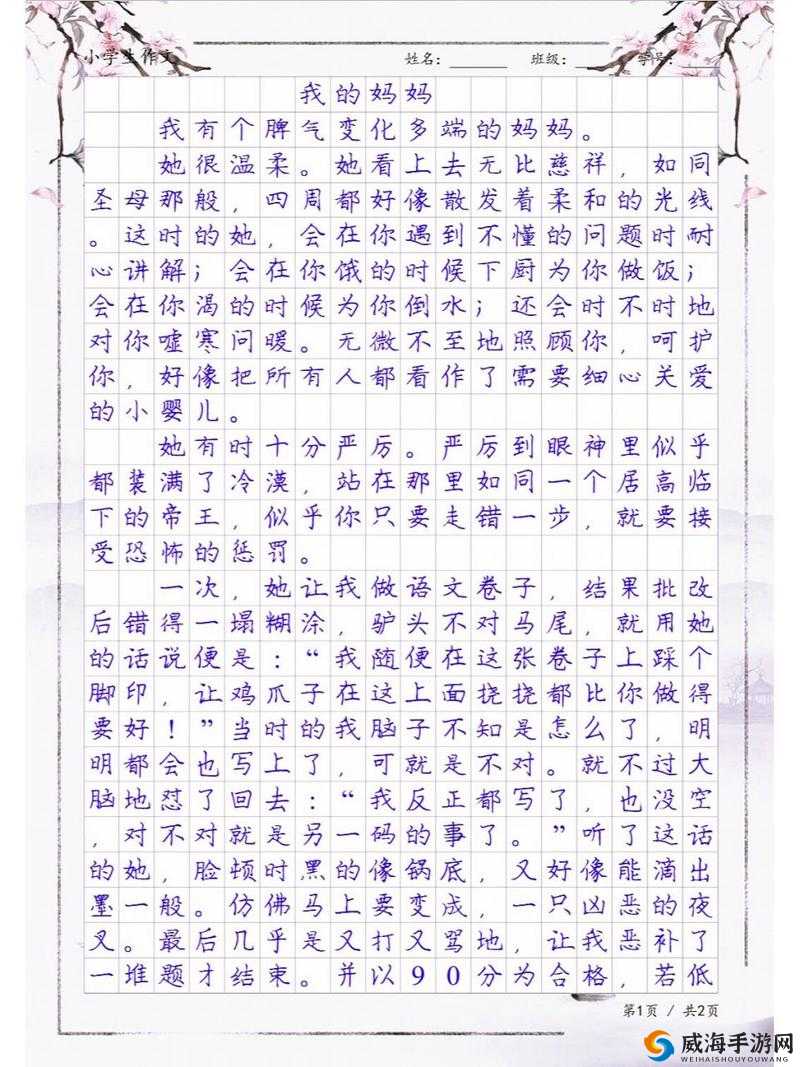 小学生作文
姓名：______ 班级：__ 学号：__
我的妈妈
我有个脾气变化多端的妈妈。
她很温柔。她看上去无比慈祥，如同
圣母那般，四周都好像散发着柔和的光线
。这时的她，会在你遇到不懂的问题时耐
心讲解；会在你饿的时候下厨为你做饭；
会在你渴的时候为你倒水；还会时不时地
对你嘘寒问暖。无微不至地照顾你，呵护
你，好像把所有人都看作了需要细心关爱
的小婴儿。
她有时十分严厉。严厉到眼神里似乎
都装满了冷漠，站在那里如同一个居高临
下的帝王，似乎你只要走错一步，就要接
受恐怖的惩罚。
一次，她让我做语文卷子，结果批改
后错得一塌糊涂，驴头不对马尾，就用她
的话说便是：“我随便在这张卷子上踩个
脚印，让鸡爪子在这上面挠挠都比你做得
要好！”当时的我脑子不知是怎么了，明
明都会也写上了，可就是不对。就不过大
脑地怼了回去：“我反正都写了，也没空
，对不对就是另一码的事了。”听了这话
的她，脸顿时黑的像锅底，又好像能滴出
墨一般。仿佛马上要变成，一只凶恶的夜
叉。最后几乎是又打又骂地，让我恶补了
一堆题才结束。并以90分为合格，若低
第1页 / 共2页
威海手游网
WEIHAISHOUYOUWANG